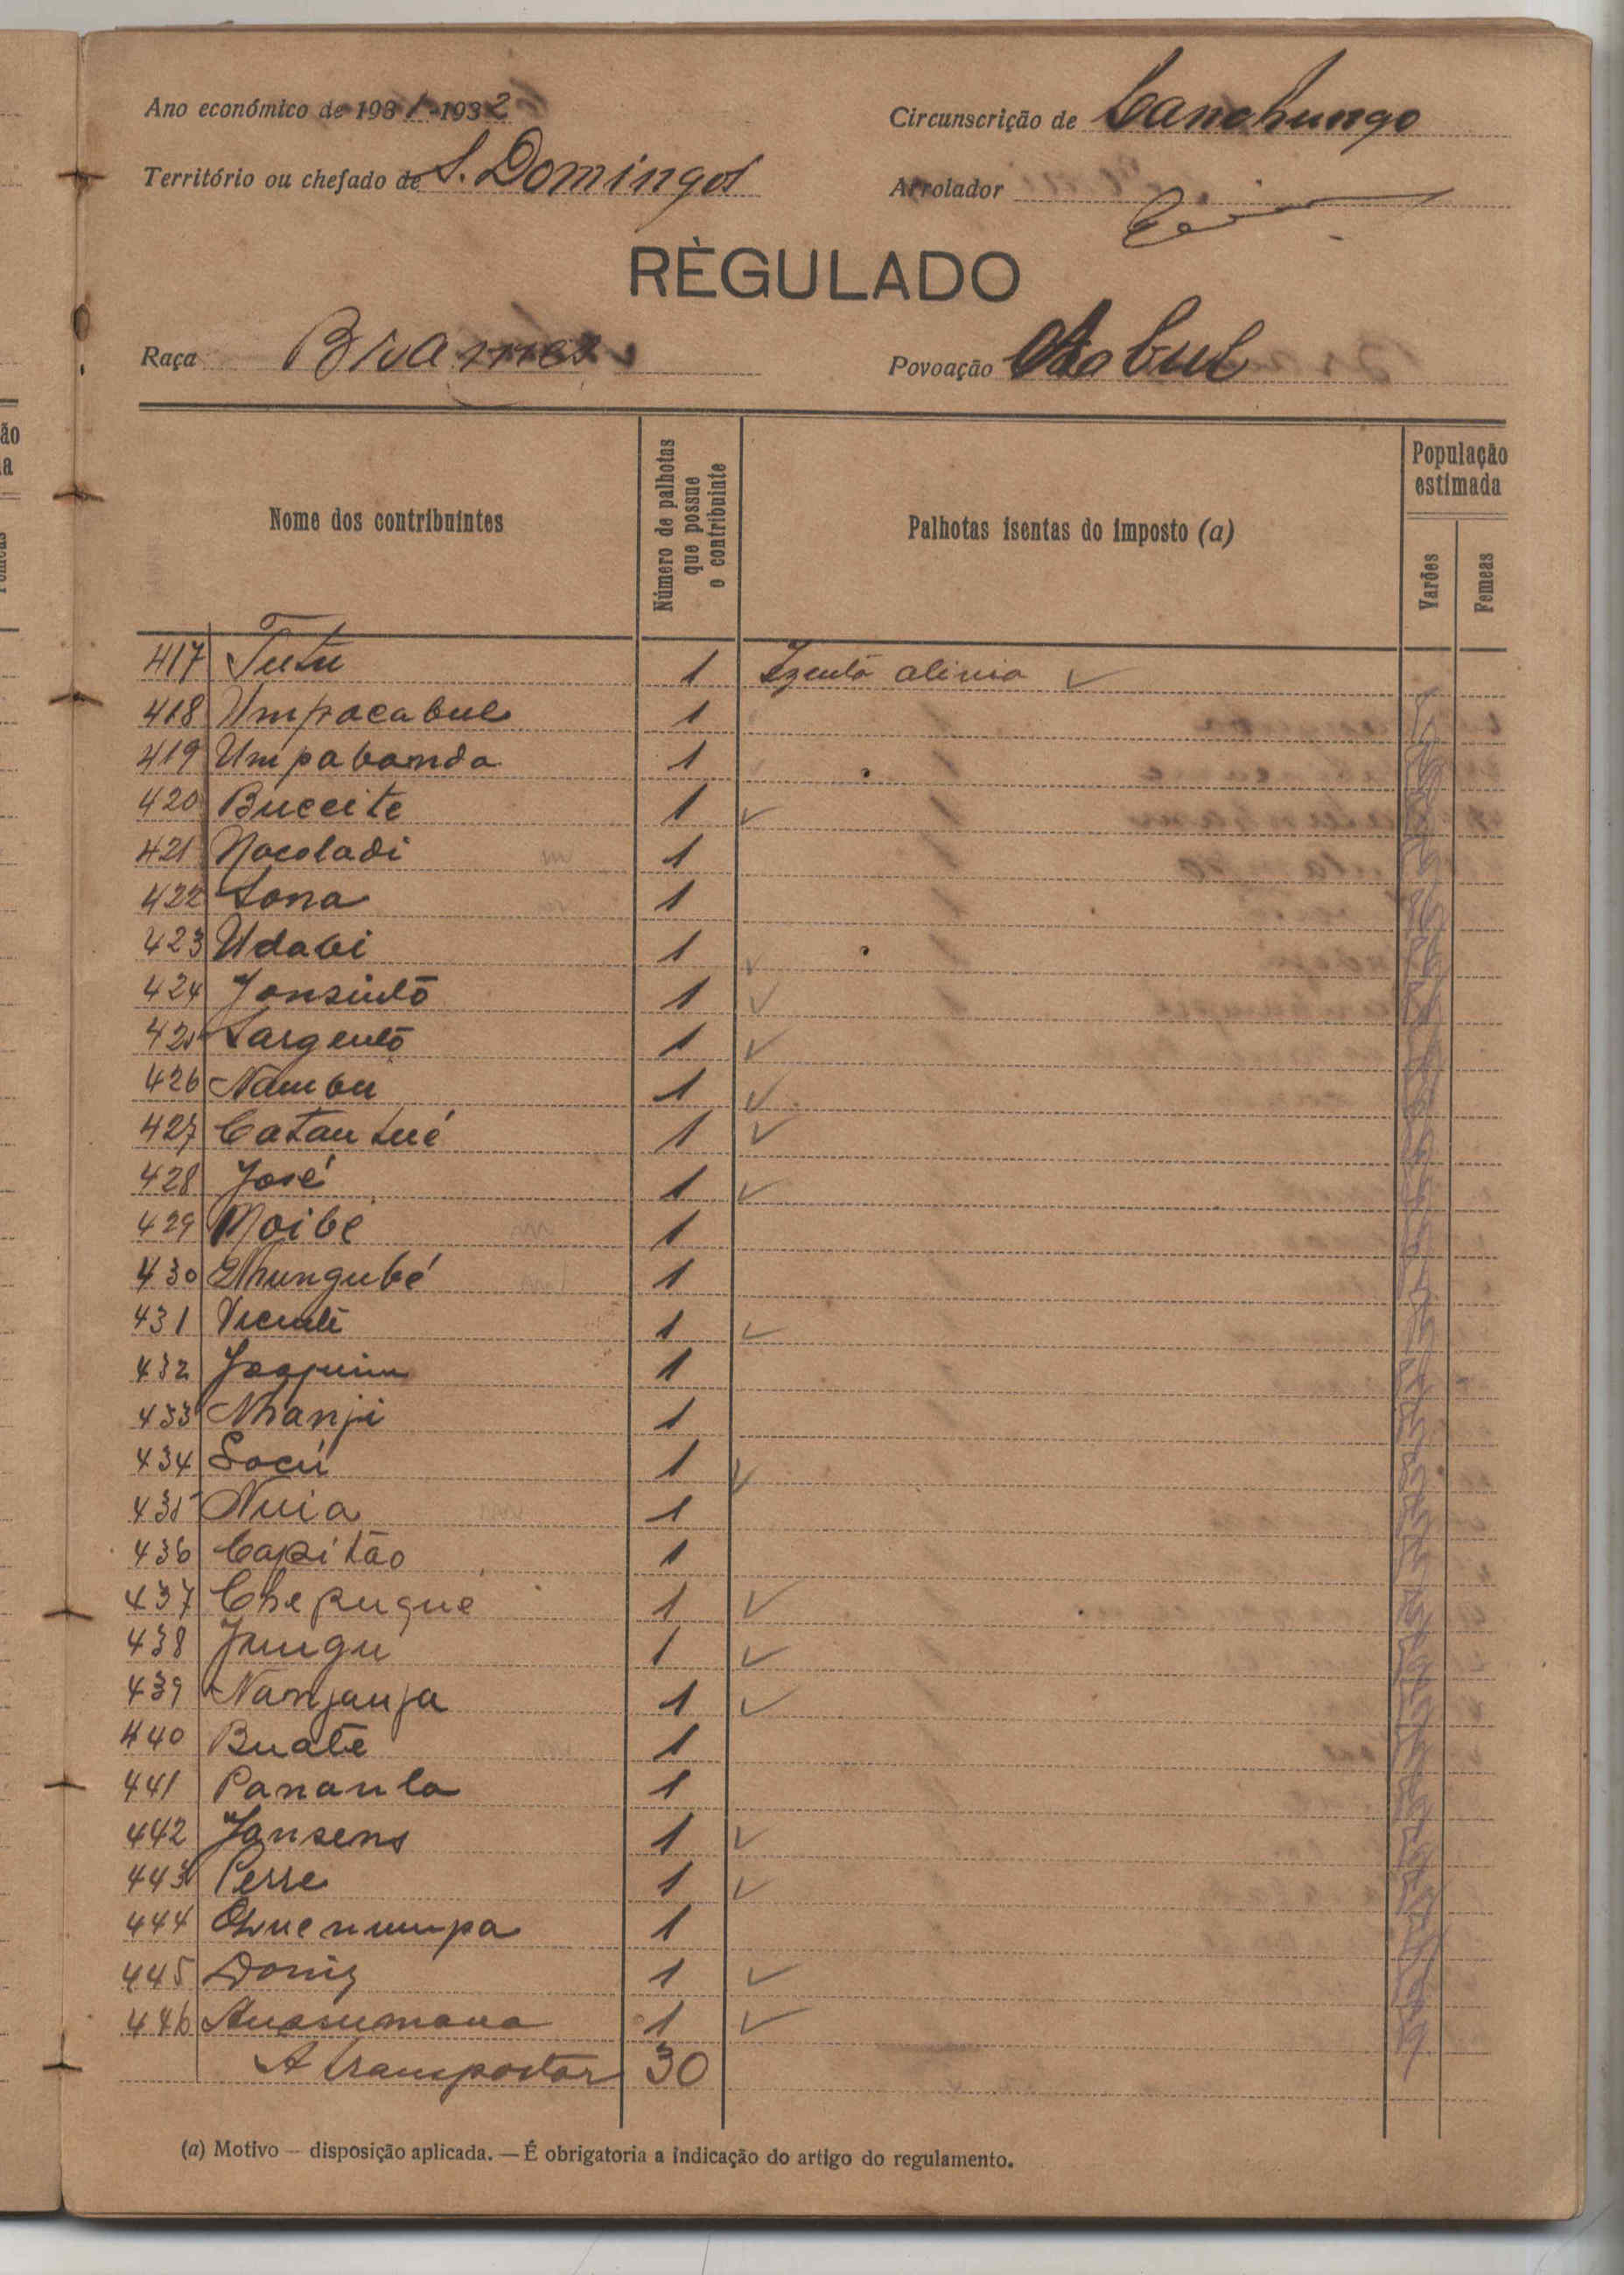 Ano económico de 1931-1932
Circunscrição de Canchungo
Território ou chefado de S. Domingos
Arrolador
RÈGULADO
Raça Brames
Povoação
Nome dos contribuintes
Número de palhotas que possue o contribuinte
Palhotas isentas do imposto (a)
População estimada
Varões
Femeas
417 Tutu 1 Izento alinia ✓
418 Umpacabul 1
419 Umpabonda 1
420 Buceite 1 ✓
421 Nocoladi 1
422 Lona 1
423 Udabi 1 ✓
424 Jonsinto 1 ✓
425 Sargento 1 ✓
426 Nambu 1 ✓
427 Catantué 1 ✓
428 José 1 ✓
429 Noibe 1
430 Nhungubé 1
431 Vicente 1 ✓
432 Joaquim 1
433 Nhanji 1
434 Socú 1 ✓
435 Nuia 1
436 Capitão 1
437 Chepugue 1 ✓
438 Jungu 1 ✓
439 Nanjanja 1 ✓
440 Buate 1
441 Pananla 1
442 Jansens 1 ✓
443 Perre 1 ✓
444 1
445 Doniz 1 ✓
446 1 ✓
A transportar 30
(a) Motivo — disposição aplicada. — É obrigatoria a indicação do artigo do regulamento.